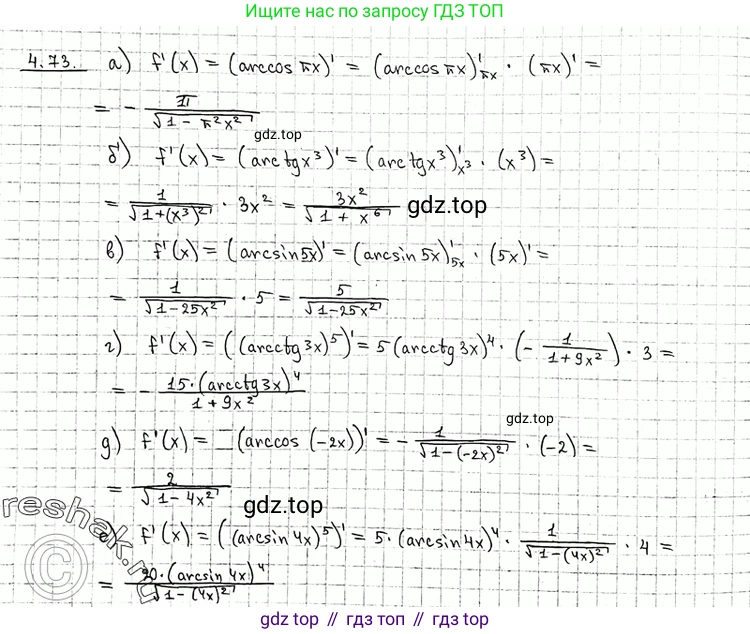 Ищите нас по запросу ГДЗ ТОП
4.73. а) f'(x) = (arccos πx)' = (arccos πx)'πx · (πx)' =
= - π/√(1 - π²x²)
gdz.top
б) f'(x) = (arctg x³)' = (arctg x³)'x³ · (x³) =
= 1/√(1+(x³)²) · 3x² = 3x²/√(1 + x⁶)
gdz.top
в) f'(x) = (arcsin 5x)' = (arcsin 5x)'5x · (5x)' =
= 1/√(1-25x²) · 5 = 5/√(1-25x²)
г) f'(x) = ((arcctg 3x)⁵)' = 5(arcctg 3x)⁴ · (- 1/(1+9x²)) · 3 =
= - 15·(arcctg 3x)⁴/(1+9x²)
gdz.top
д) f'(x) = (arccos (-2x))' = - 1/√(1-(-2x)²) · (-2) =
= 2/√(1-4x²)
gdz.top
reshak.ru
е) f'(x) = ((arcsin 4x)⁵)' = 5·(arcsin 4x)⁴ · 1/√(1-(4x)²) · 4 =
= 20·(arcsin 4x)⁴/√(1-(4x)²)
gdz.top // gdz.top // gdz.top